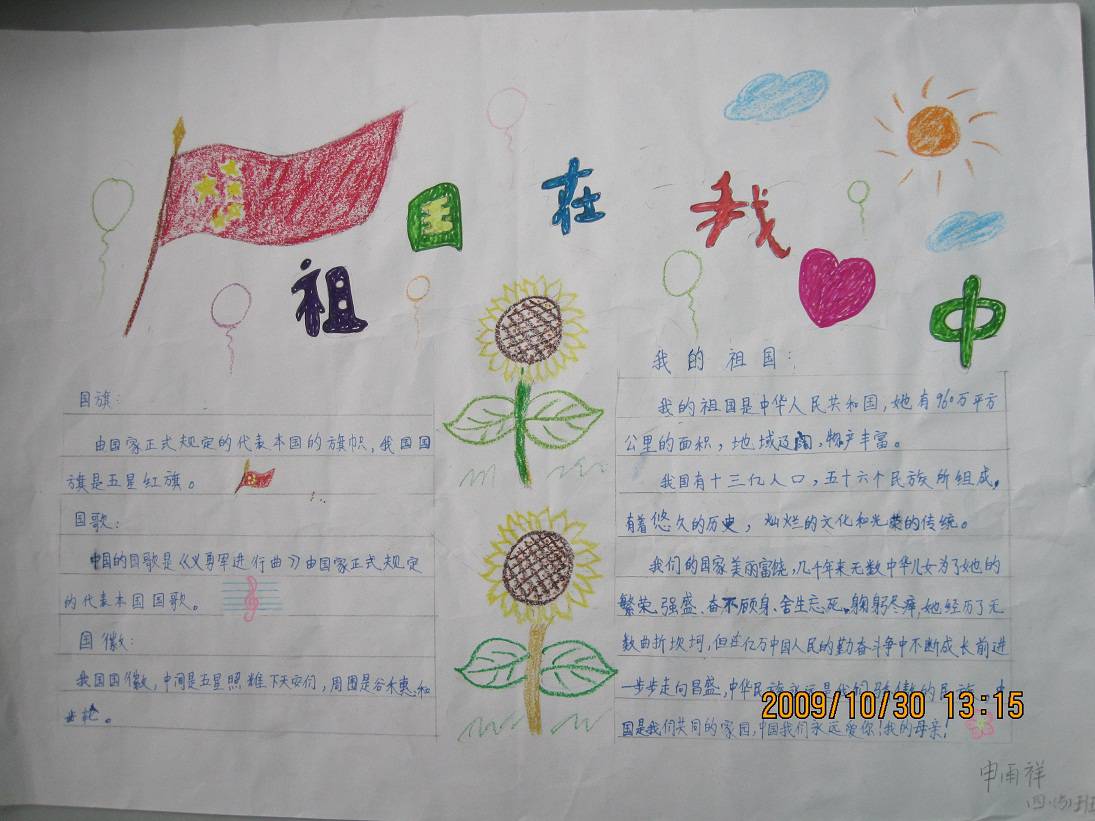 祖国在我中
国旗:
由国家正式规定的代表本国的旗帜,我国国
旗是五星红旗。
国歌:
中国的国歌是《义勇军进行曲》由国家正式规定
的代表本国国歌。
国徽:
我国国徽,中间是五星照耀下天安门,周围是谷禾惠和
齿轮。
我的祖国:
我的祖国是中华人民共和国,她有960万平方
公里的面积,地域辽阔,物产丰富。
我国有十三亿人口,五十六个民族所组成,
有着悠久的历史,灿烂的文化和光荣的传统。
我们的国家美丽富饶,几千年来无数中华儿女为了她的
繁荣、强盛、奋不顾身、舍生忘死,鞠躬尽瘁,她经历了无
数曲折坎坷,但在亿万中国人民的勤奋斗争中不断成长前进
一步步走向昌盛,中华民族永远是我们骄傲的民族
国是我们共同的家园,中国我们永远爱你!我的母亲!
2009/10/30 13:15
申雨祥
班